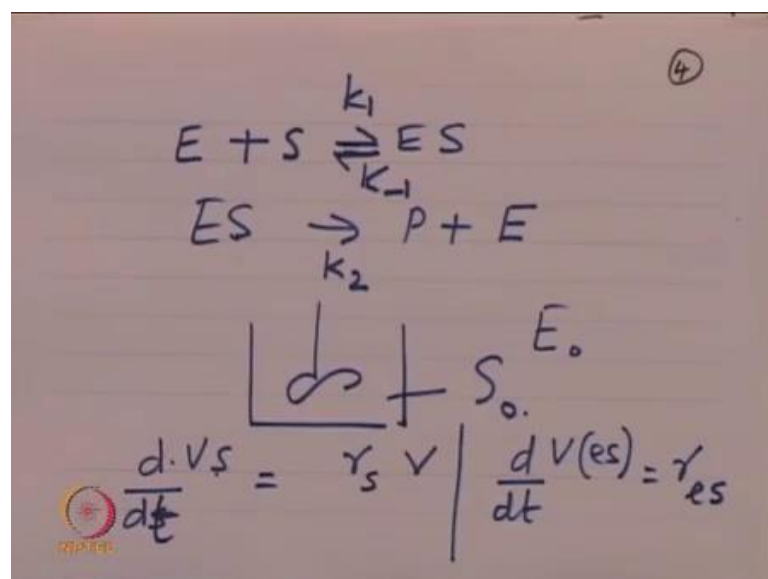 4
k₁
E + S ⇌ ES
K₋₁
ES → P + E
k₂
E₀
S₀.
d·VS/dt = r_s V | d/dt V(es) = r_es
NPTEL